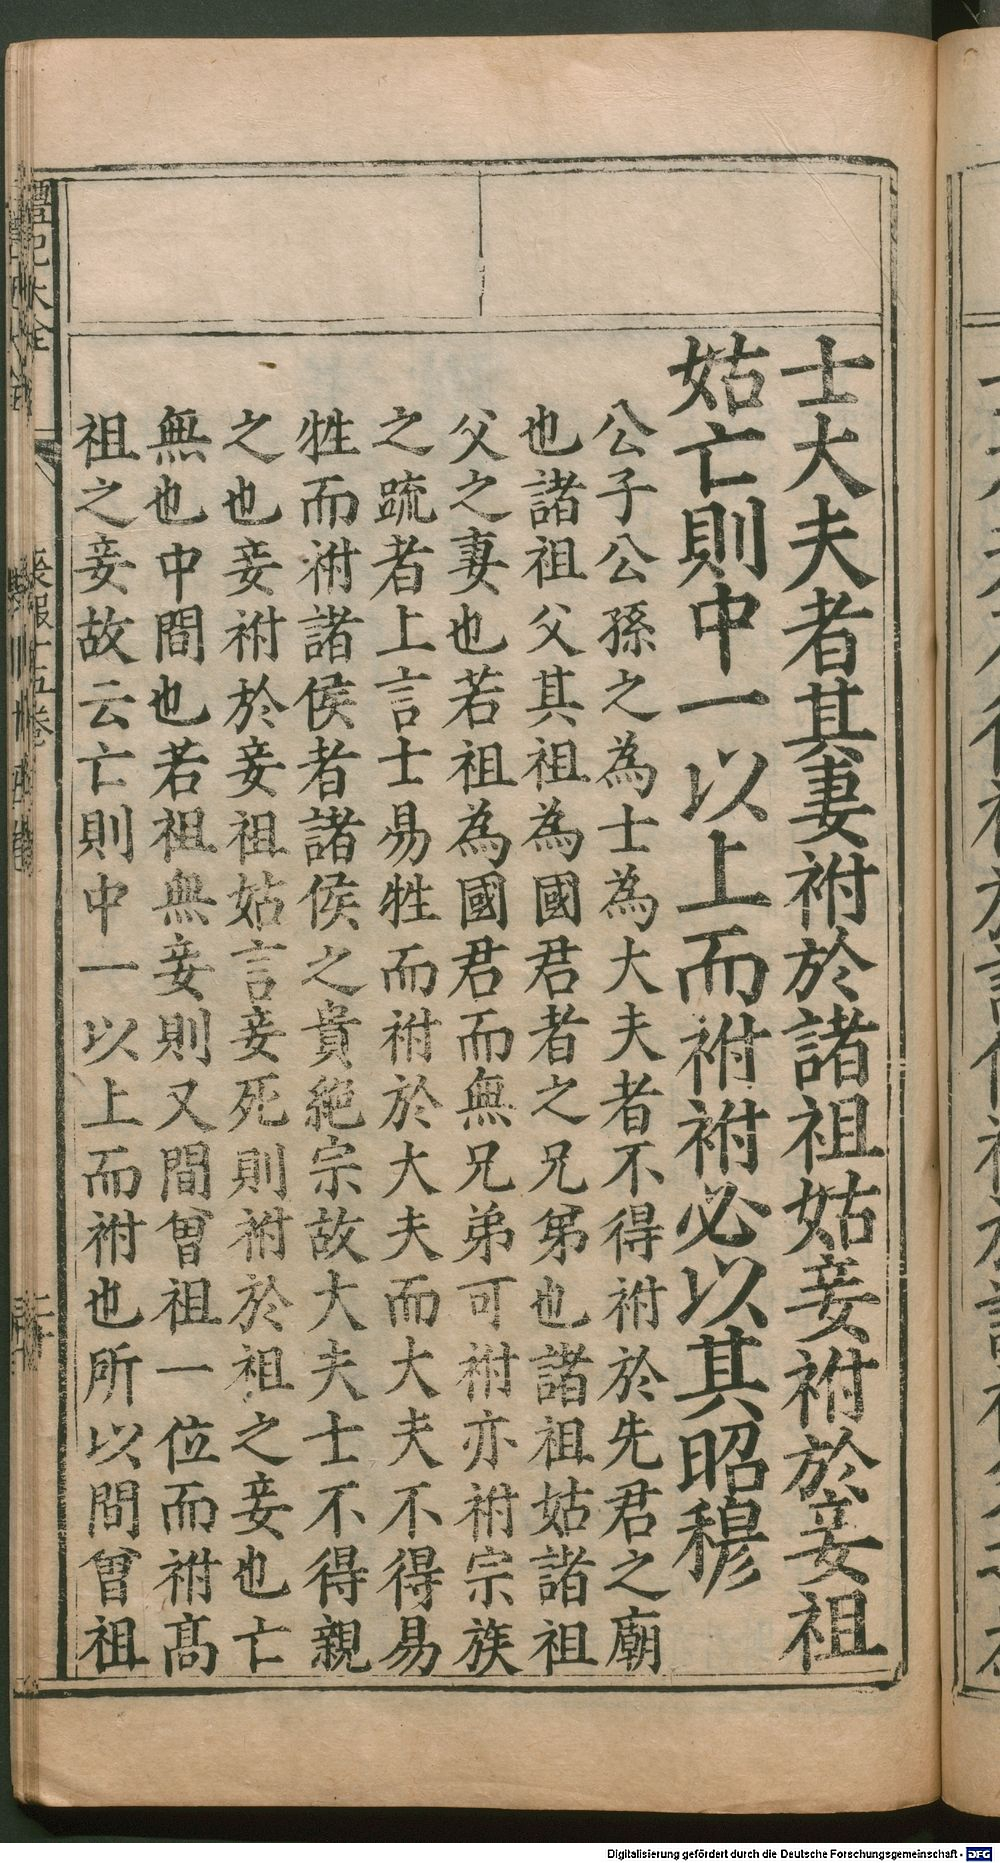 士大夫者其妻祔於諸祖姑妾祔於妾祖
姑亡則中一以上而祔祔必以其昭穆
公子公孫之為士為大夫者不得祔於先君之廟
也諸祖父其祖為國君者之兄弟也諸祖姑諸祖
父之妻也若祖為國君而無兄弟可祔亦祔宗族
之疏者上言士易牲而祔於大夫而大夫不得易
牲而祔諸侯者諸侯之貴絶宗故大夫士不得親
之也妾祔於妾祖姑言妾死則祔於祖之妾也亡
無也中間也若祖無妾則又間曾祖一位而祔髙
祖之妾故云亡則中一以上而祔也所以間曾祖
禮記大全
喪服十五卷
Digitalisierung gefördert durch die Deutsche Forschungsgemeinschaft - DFG